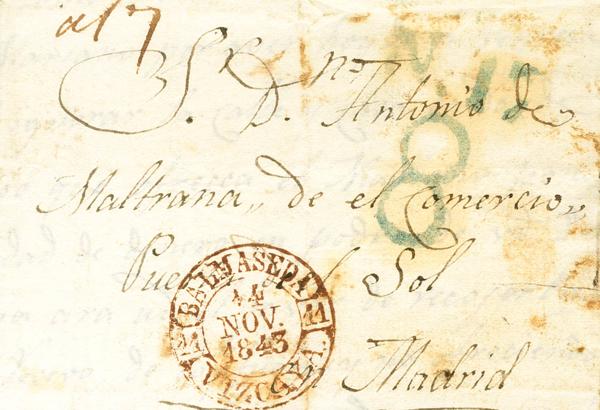 a 17
Sr. D. Antonio de
Maltrana, de el Comercio,
Puerta del Sol
en Madrid
8
BALMASEDA
14
NOV.
1843
11
11
VIZCAYA.